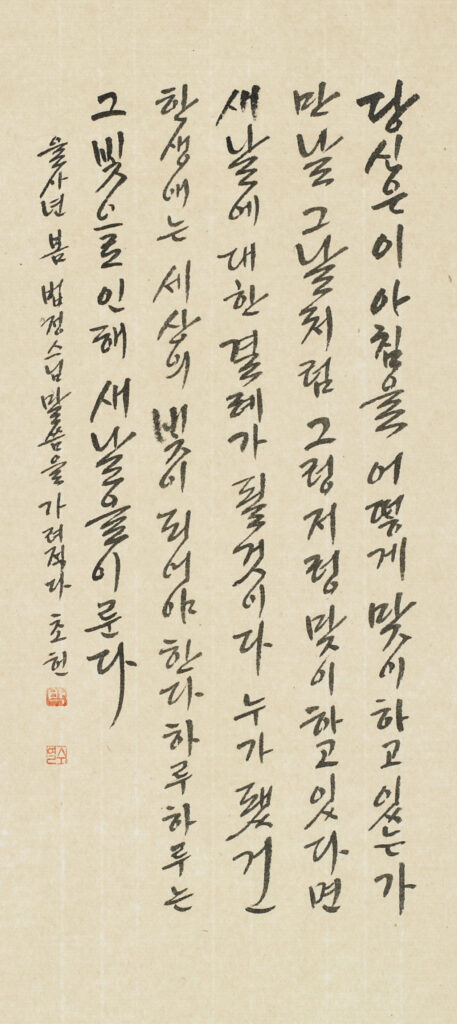 당신은 이 아침을 어떻게 맞이하고 있는가
만날 그날처럼 그렁저렁 맞이하고 있다면
새날에 대한 결례가 될것이다 누가 됐건
한 생애는 세상의 빛이 되어야 한다 하루하루는
그 빛으로 인해 새날을 이룬다
을사년 봄 법정스님 말씀을 가려적다 초헌